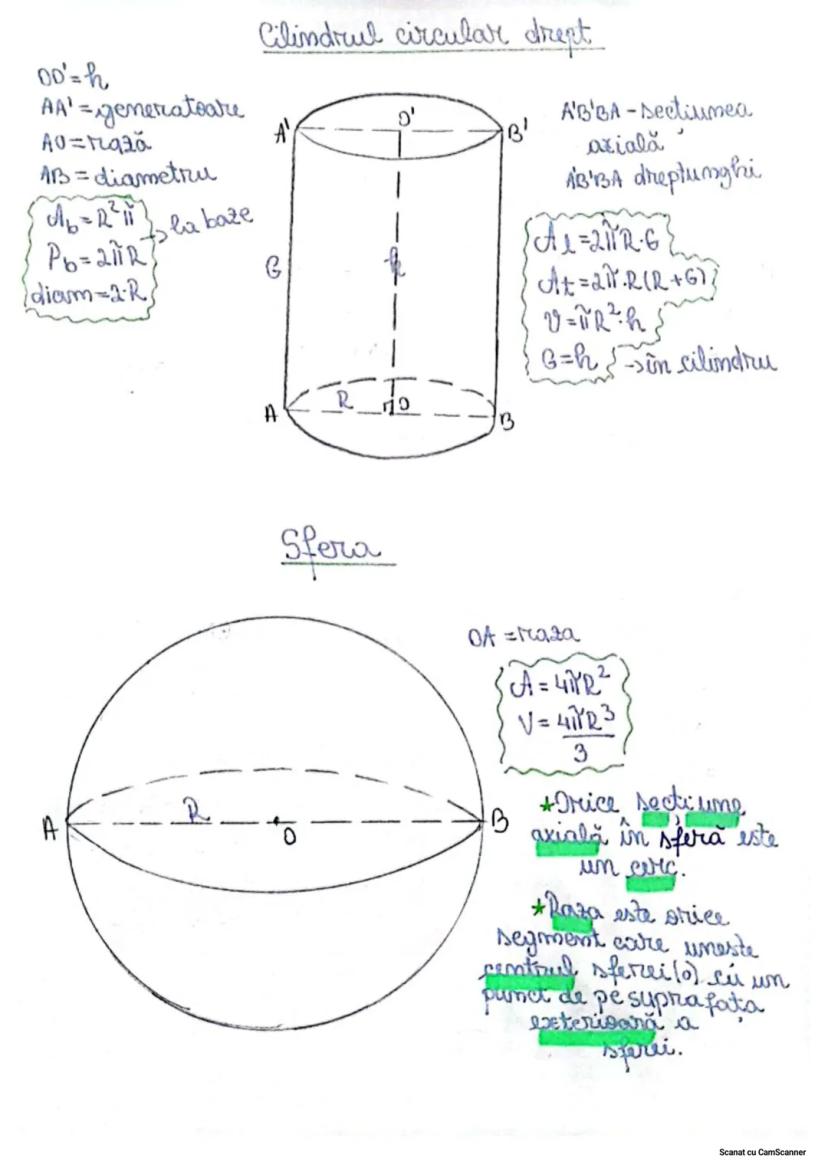 Cilindrul circular drept
OO'=h
AA'=generatoare
AO=rază
AB=diametru
Ab=R²π
Pb=2πR
diam=2·R
→ la baze
A'
O'
B'
G
h
A
R
O
B
A'B'BA - secțiunea
axială
A'B'BA dreptunghi
Al=2πR·G
At=2π·R(R+G)
V=πR²·h
G=h → în cilindru
Sfera
A
R
O
B
OA=raza
A=4πR²
V=4πR³
3
*Orice secțiune
axială în sferă este
un cerc.
*Raza este orice
segment care unește
centrul sferei(o) cu un
punct de pe suprafața
exterioară a
sferei.
Scanat cu CamScanner